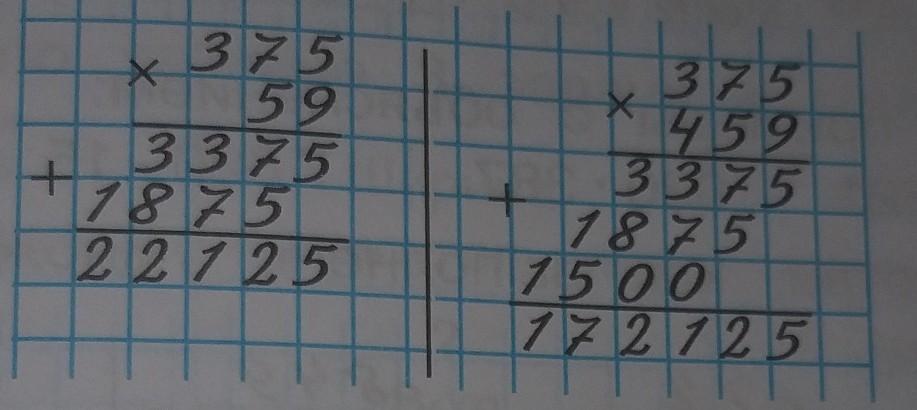 × 375
59
+ 3375
1875
22125
× 375
459
+ 3375
1875
1500
172125